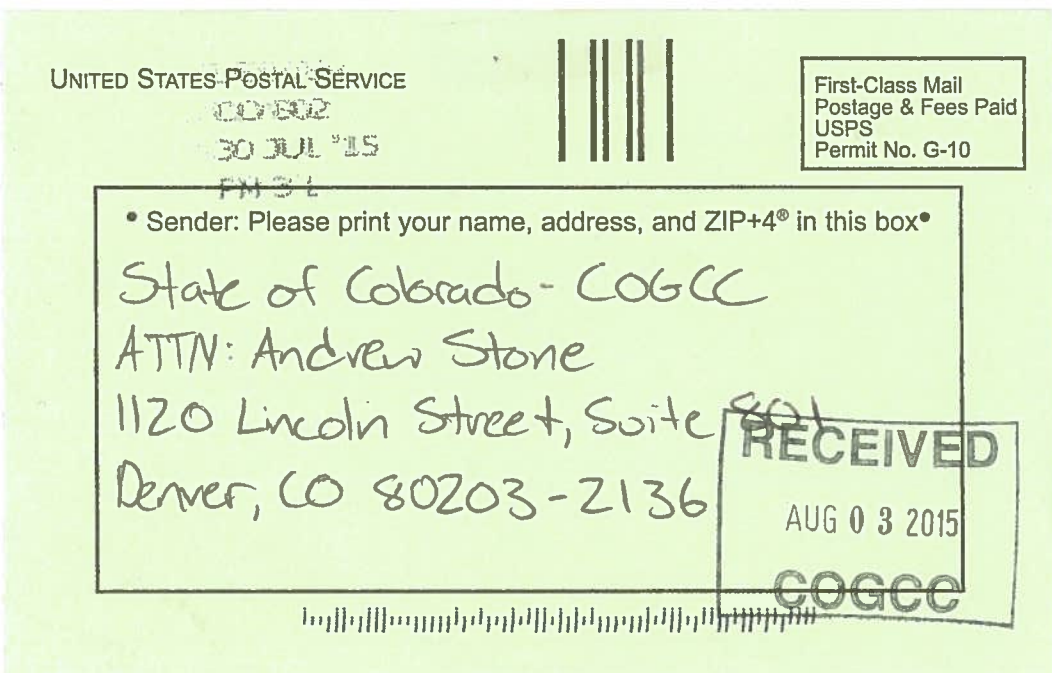 UNITED STATES POSTAL SERVICE
30 JUL '15
First-Class Mail
Postage & Fees Paid
USPS
Permit No. G-10
• Sender: Please print your name, address, and ZIP+4® in this box•
State of Colorado - COGCC
ATTN: Andrew Stone
1120 Lincoln Street, Suite 801
Denver, CO 80203-2136
RECEIVED
AUG 03 2015
COGCC